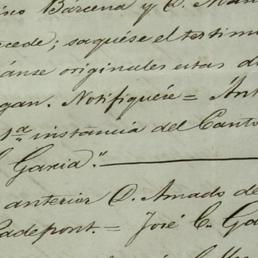 ino Bárcena y D. Man
cede; saquése el testim
ánse originales estas d
gan. Notifíquese = Ant
1ª instancia del Canto
Garcia". 
anterior D. Amado de
adepont. = José C. Ga